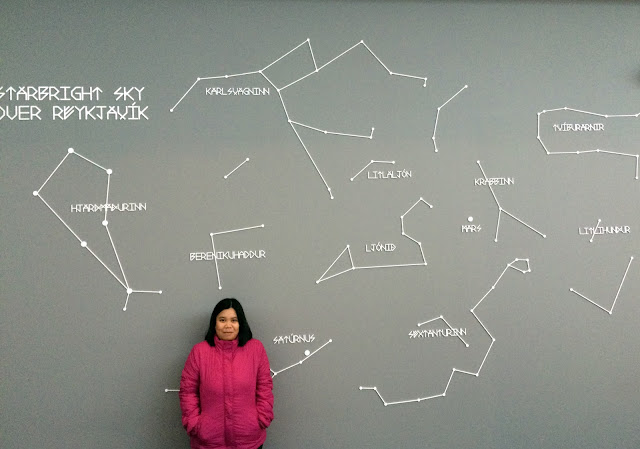 STARBRIGHT SKY
OVER REYKJAVÍK
KARLSVAGNINN
TVÍBURARNIR
LITLALJÓN
KRABBINN
HJARÐMAÐURINN
MARS
LITLIHUNDUR
LJÓNIÐ
BERENIKUHADDUR
SATÚRNUS
SEXTANTURINN